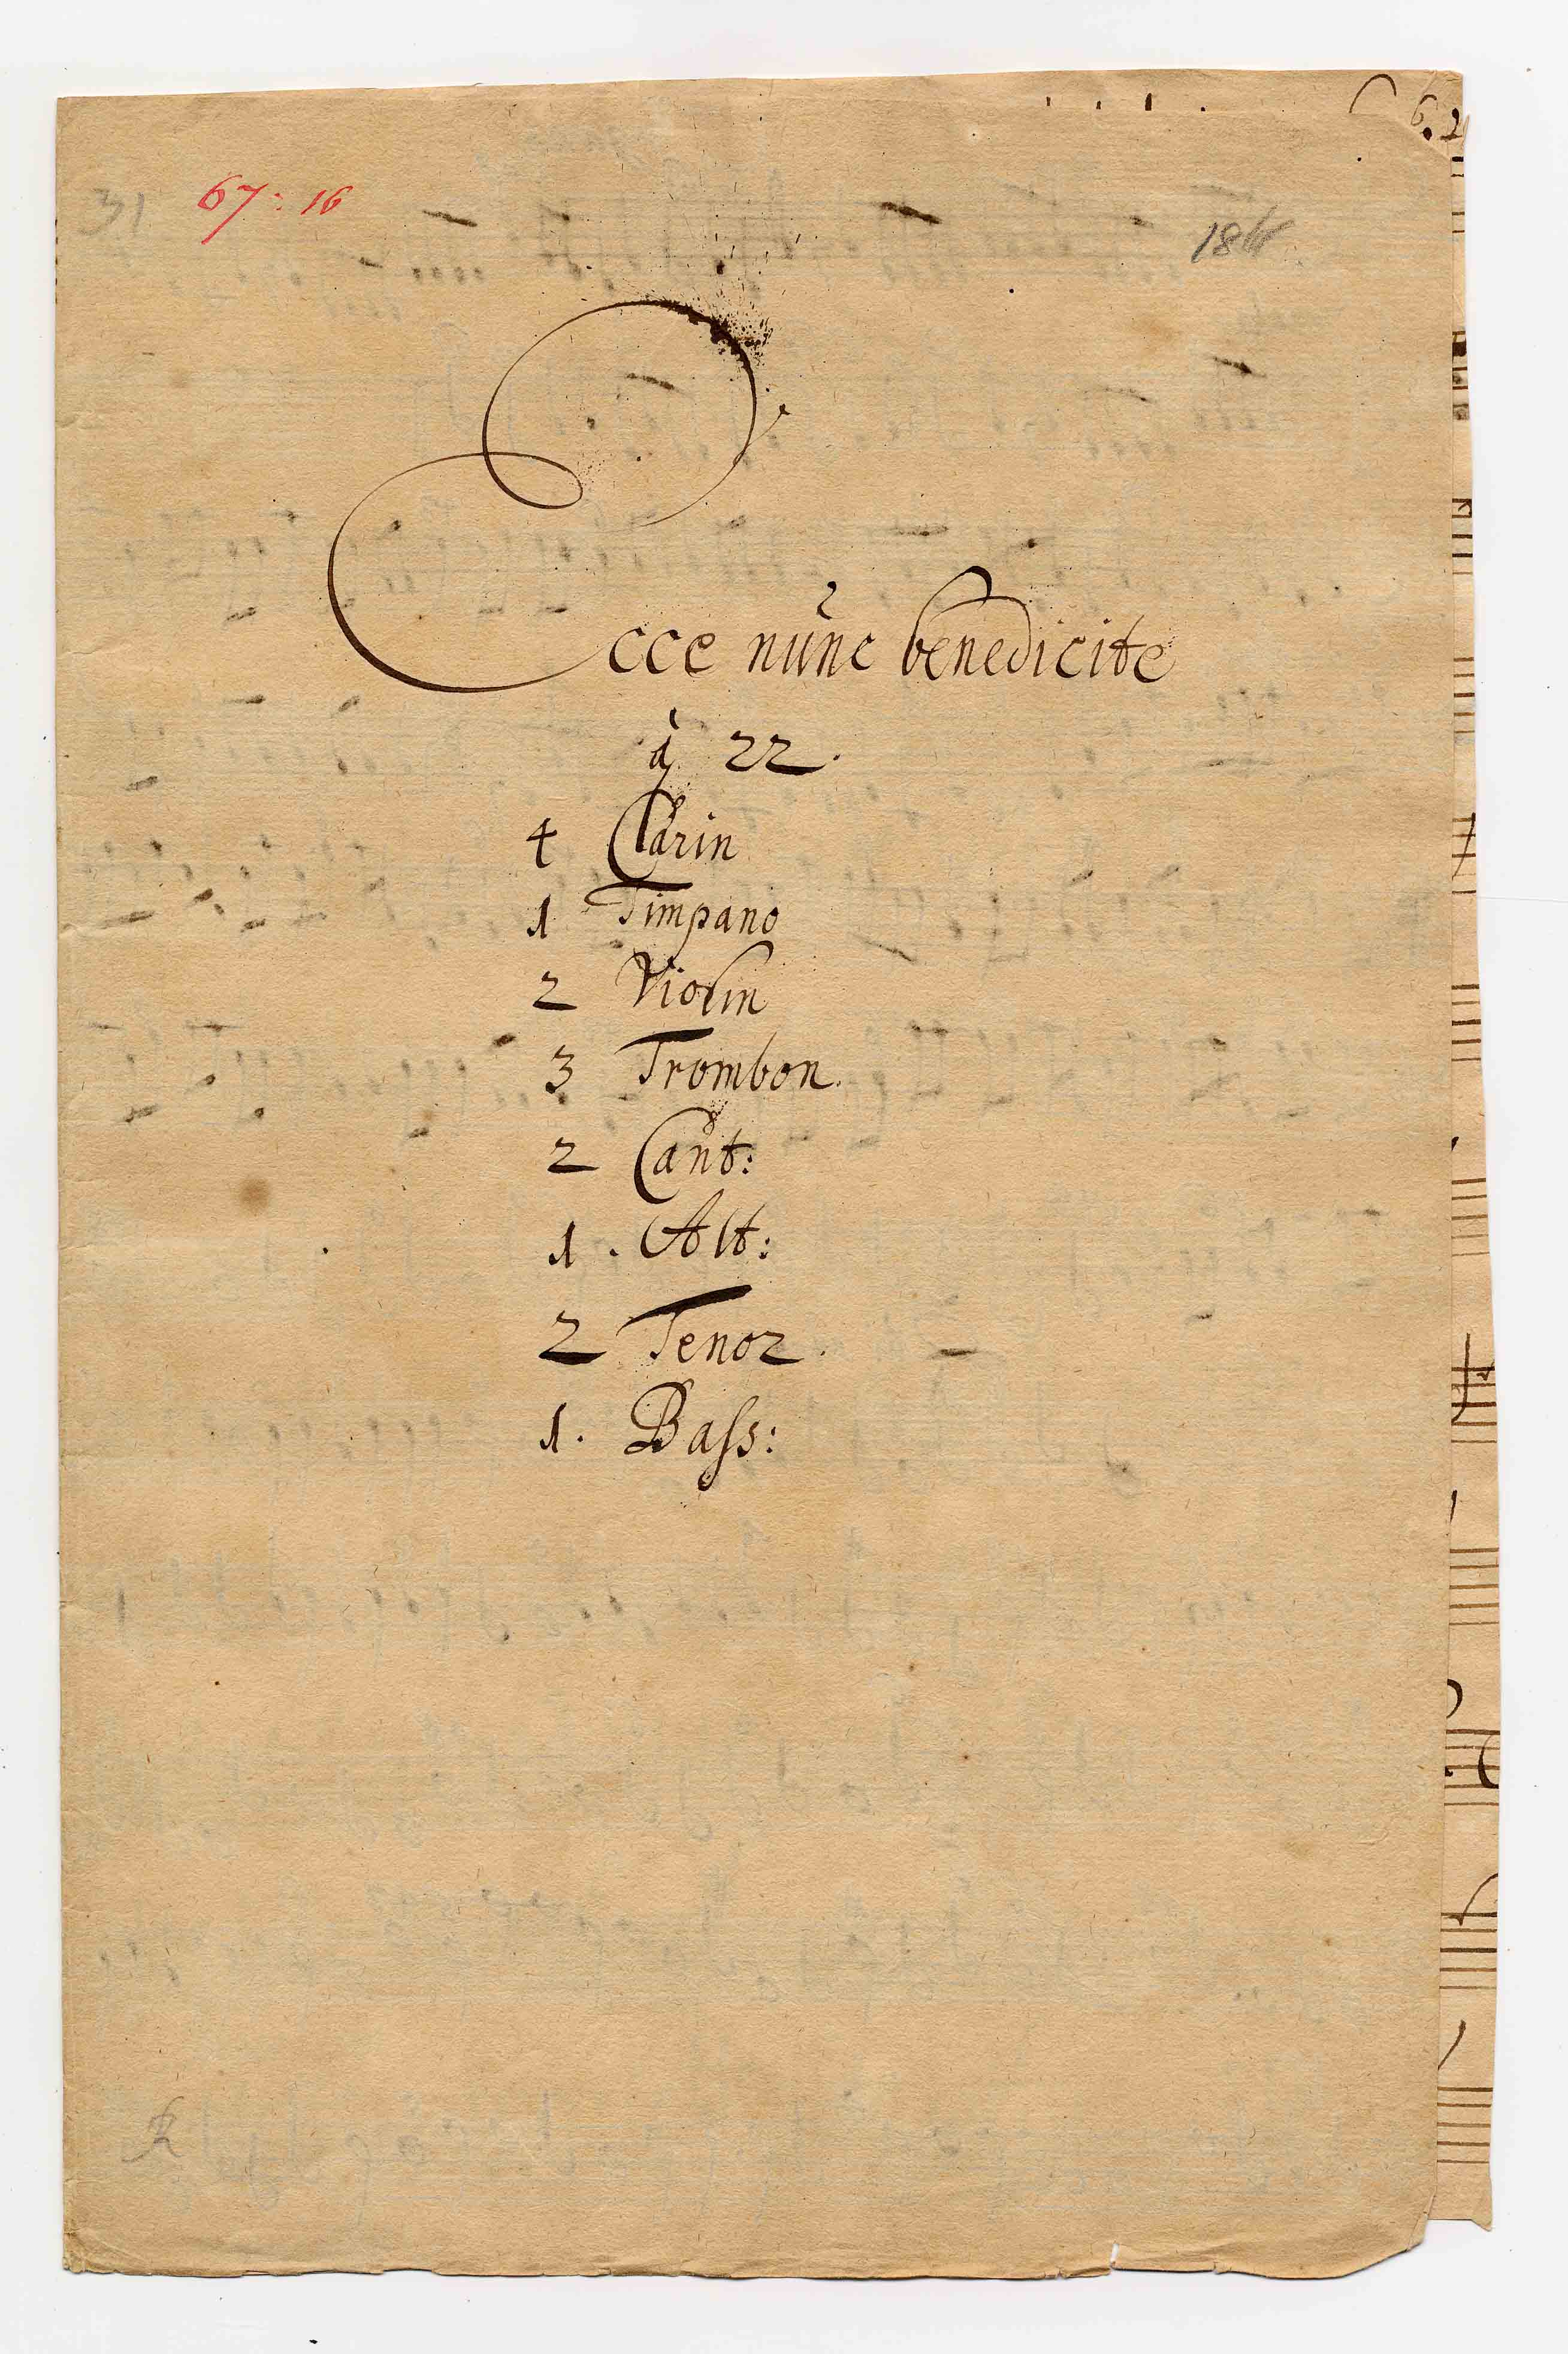 6.2
31 67: 16
Ecce nunc benedicite
à 22.
4 Clarin
1 Timpano
2 Violin
3 Trombon.
2 Cant:
1. Alt:
2 Tenor.
1. Bass:
R